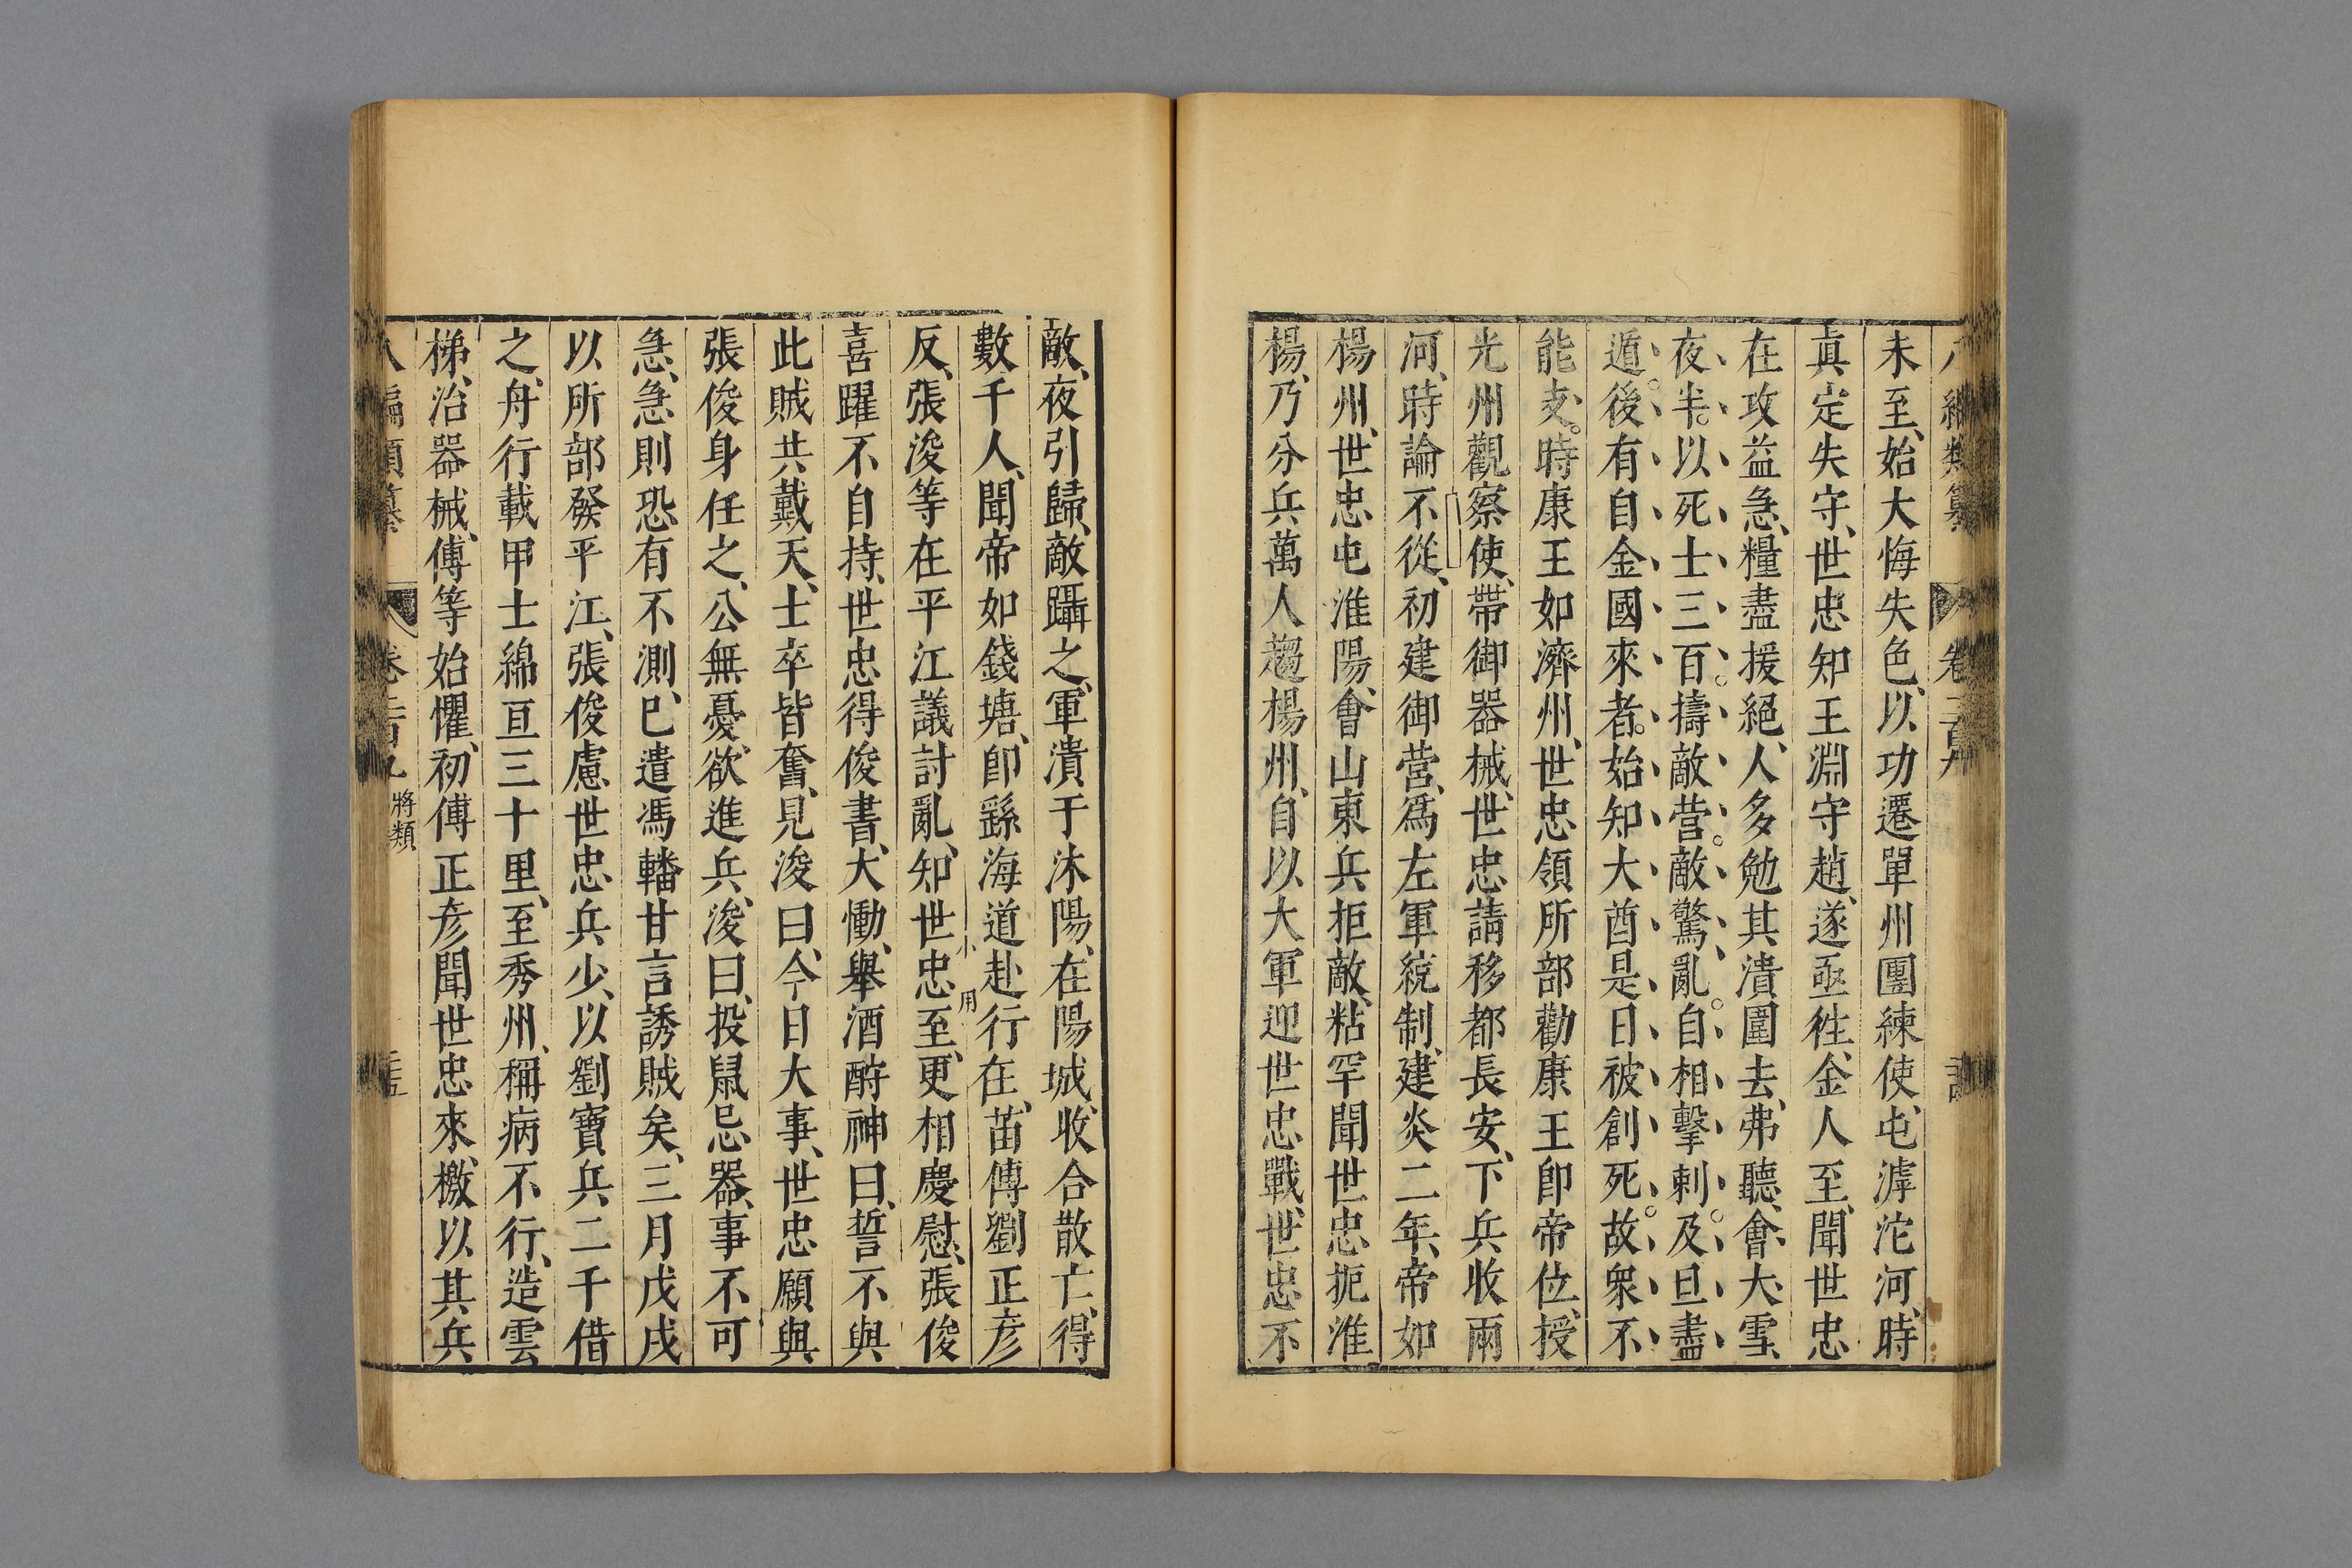 八編類纂 卷二百九
未至、始大悔失色、以功遷單州團練使、屯滹沱河、時
眞定失守、世忠知王淵守趙、遂亟徃、金人至、聞世忠
在攻益急、糧盡援絕、人多勉其潰圍去、弗聽、會大雪、
夜半。以死士三百。擣敵营。敵驚亂。自相擊剌。及旦盡
遁。後有自金國來者。始知大酋是日被創死。故衆不
能支。時康王如濟州、世忠領所部勸康王卽帝位、授
光州觀察使、帶御器械、世忠請移都長安、下兵收兩
河、時論不從、初建御营、爲左軍統制、建炎二年、帝如
楊州、世忠屯淮陽、會山東兵拒敵、粘罕聞世忠扼淮
楊、乃分兵萬人趨楊州、自以大軍迎世忠戰、世忠不
敵、夜引歸、敵躡之、軍潰于沐陽、在陽城、收合散亡、得
數千人、聞帝如錢塘、卽繇海道赴行在、苗傅劉正彦
小用
反、張浚等在平江議討亂、知世忠至、更相慶慰、張俊
喜躍不自持、世忠得俊書、大慟、舉酒酹神曰、誓不與
此賊共戴天、士卒皆奮、見浚曰、今日大事、世忠願與
張俊身任之、公無憂、欲進兵、浚曰、投鼠忌器、事不可
急、急則恐有不測、巳遣馮轓甘言誘賊矣、三月戊戌
以所部發平江、張俊慮世忠兵少、以劉寶兵二千借
之、舟行載甲士綿亘三十里、至秀州、稱病不行、造雲
梯、治器械、傅等始懼、初傅正彦聞世忠來、檄以其兵
八編類纂 卷二百九 將類